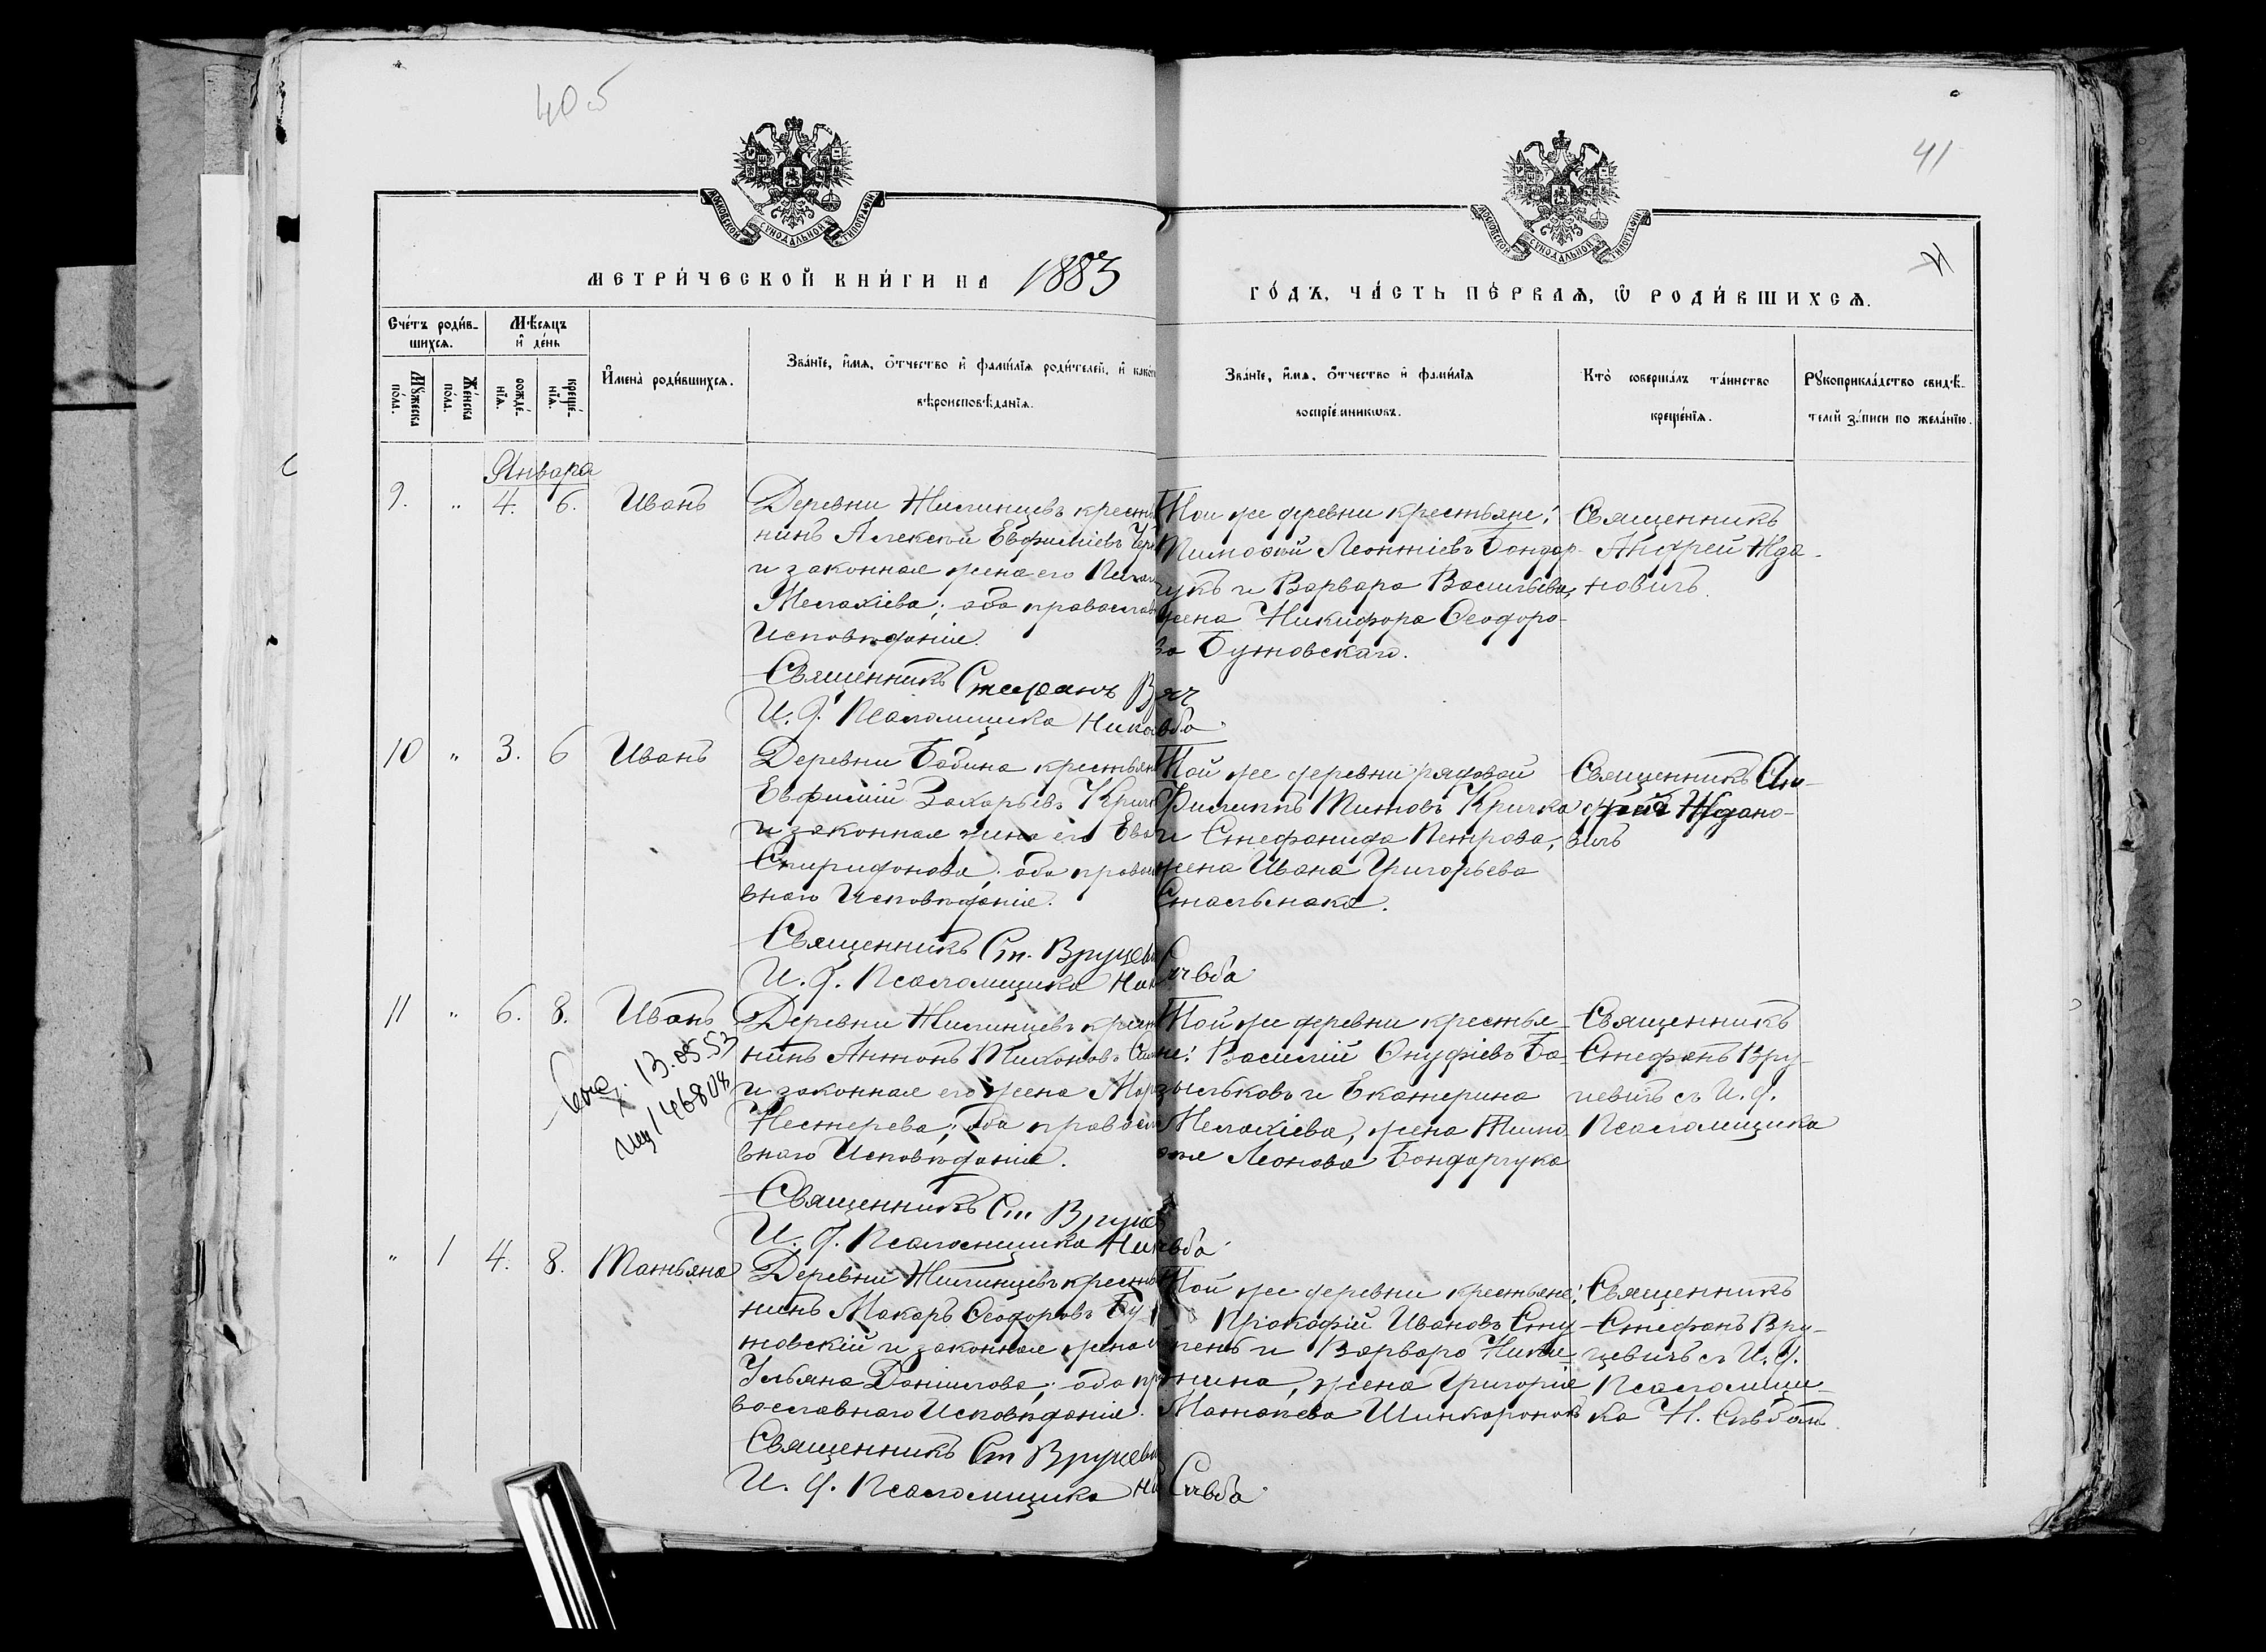 405
41
МОСКОВСКОЙ СѴНОДАЛЬНОЙ ТИПОГРАФІИ
МОСКОВСКОЙ СѴНОДАЛЬНОЙ ТИПОГРАФІИ
МЕТРИ́ЧЕСКОЙ КНИ́ГИ НА 1883
ГО́ДЪ, ЧА́СТЬ ПЕ́РВАѦ, Ѡ҆ РОДИ́ВШИХСѦ.
Сче́тъ роди́в-
шихсѧ.
Мѣ́сѧцъ
и҆ де́нь
Мꙋ́жеска
по́ла.
Же́нска
по́ла.
рожде́-
нїѧ.
креще́-
нїѧ.
И҆мена̀ роди́вшихсѧ.
Зва́нїе, и҆́мѧ, ѻ҆́тчество и҆ фами́лїѧ роди́телей, и҆ како́
вѣроисповѣ́данїѧ.
Зва́нїе, и҆́мѧ, ѻ҆́тчество и҆ фами́лїѧ
воспрїе́мникѡвъ.
Кто̀ соверша́лъ та́инство
креще́нїѧ.
Рꙋкоприкла́дство свидѣ́-
телей за́писи по жела́нїю.
Января
9. " 4. 6. Иванъ
Деревни Жилинцевъ крестья
нинъ Алексѣй Евфиміевъ
и законная жена его
Мелахіева; оба православ
Исповѣданія.
Священникъ Стефанъ
И. д. Псаломщика
Той же деревни крестьяне:
Тимофей Леонтіевъ Бондар-
чукъ и Варвара Васильева,
жена Никифора Ѳеодоро-
ва Бутовскаго.
Священникъ
Андрей Жда-
новичъ.
10 " 3. 6 Иванъ
Деревни Бабина крестьян
Евфимій Захарьевъ
и законная жена его
Спиридонова; оба правосла
внаго Исповѣданія.
Священникъ Ст. Вруцеви
И. д. Псаломщика
Той же деревни рядовой
Филиппъ Титовъ Кричка
и Стефанида Петрова,
жена Ивана Григорьева
Стальмака.
Священникъ Ан-
дрей Ждано-
вичъ
11 " 6. 8. Иванъ
13.05.53
146808
Деревни Жилинцевъ крест
нинъ Антонъ Тихоновъ
и законная его жена
Нестерева; оба правосла
внаго Исповѣданія.
Священникъ Ст Вруцев
И. д. Псаломщика
Той же деревни крестья-
не: Василій Онуфріевъ Ба-
зыльковъ и Екатерина
Мелахіева, жена Тимо
ѳея Леонова Бондарчука
Священникъ
Стефанъ Вру-
цевичъ съ И. д.
Псаломщика
" 1 4. 8. Татьяна
Деревни Жилинцевъ крестья
нинъ Макаръ Ѳеодоровъ Бу-
товскій и законная жена
Ульяна Данилова; оба пра
вославнаго Исповѣданія.
Священникъ Ст Вруцеви
И. д. Псаломщика
Той же деревни крестьяне:
Прокофій Ивановъ Сту-
пень и Варвара Ники-
тина, жена Григорія
Матвѣева
Священникъ
Стефанъ Вру-
цевичъ съ И. д.
Псаломщи-
ка Н.